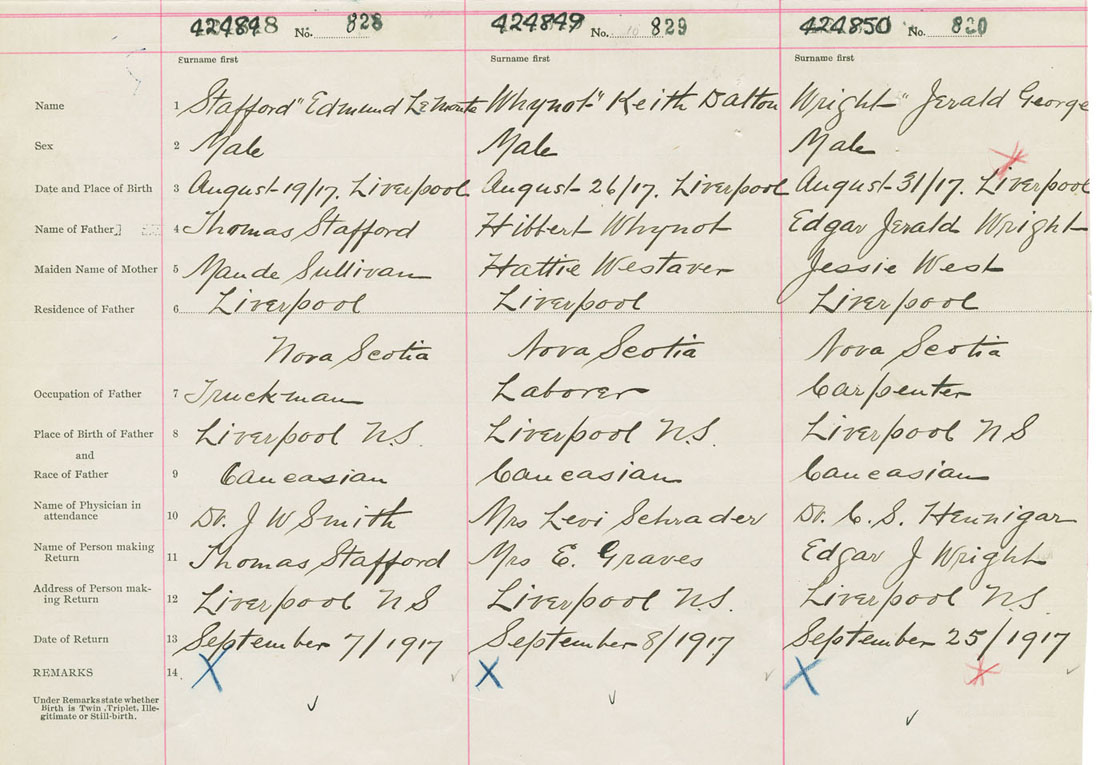 424848 No. 828 424849 No. 829 424850 No. 830
Surname first Surname first Surname first
Name 1 Stafford" Edmund LeMonte Whynot" Keith Dalton Wright" Jerald George
Sex 2 Male Male Male
Date and Place of Birth 3 August 19/17. Liverpool August 26/17. Liverpool August 31/17. Liverpool
Name of Father 4 Thomas Stafford Hibbert Whynot Edgar Jerald Wright
Maiden Name of Mother 5 Maude Sullivan Hattie Westaver Jessie West
Residence of Father 6 Liverpool Liverpool Liverpool
Nova Scotia Nova Scotia Nova Scotia
Occupation of Father 7 Truckman Laborer Carpenter
Place of Birth of Father 8 Liverpool N.S. Liverpool N.S. Liverpool N S
and
Race of Father 9 Caucasian Caucasian Caucasian
Name of Physician in
attendance 10 Dr. J W Smith Mrs Levi Schrader Dr. C. S. Hennigar
Name of Person making
Return 11 Thomas Stafford Mrs E. Graves Edgar J Wright
Address of Person mak-
ing Return 12 Liverpool N S Liverpool N.S. Liverpool N.S.
Date of Return 13 September 7/1917 September 8/1917 September 25/1917
REMARKS 14
Under Remarks state whether
Birth is Twin, Triplet, Ille-
gitimate or Still-birth.